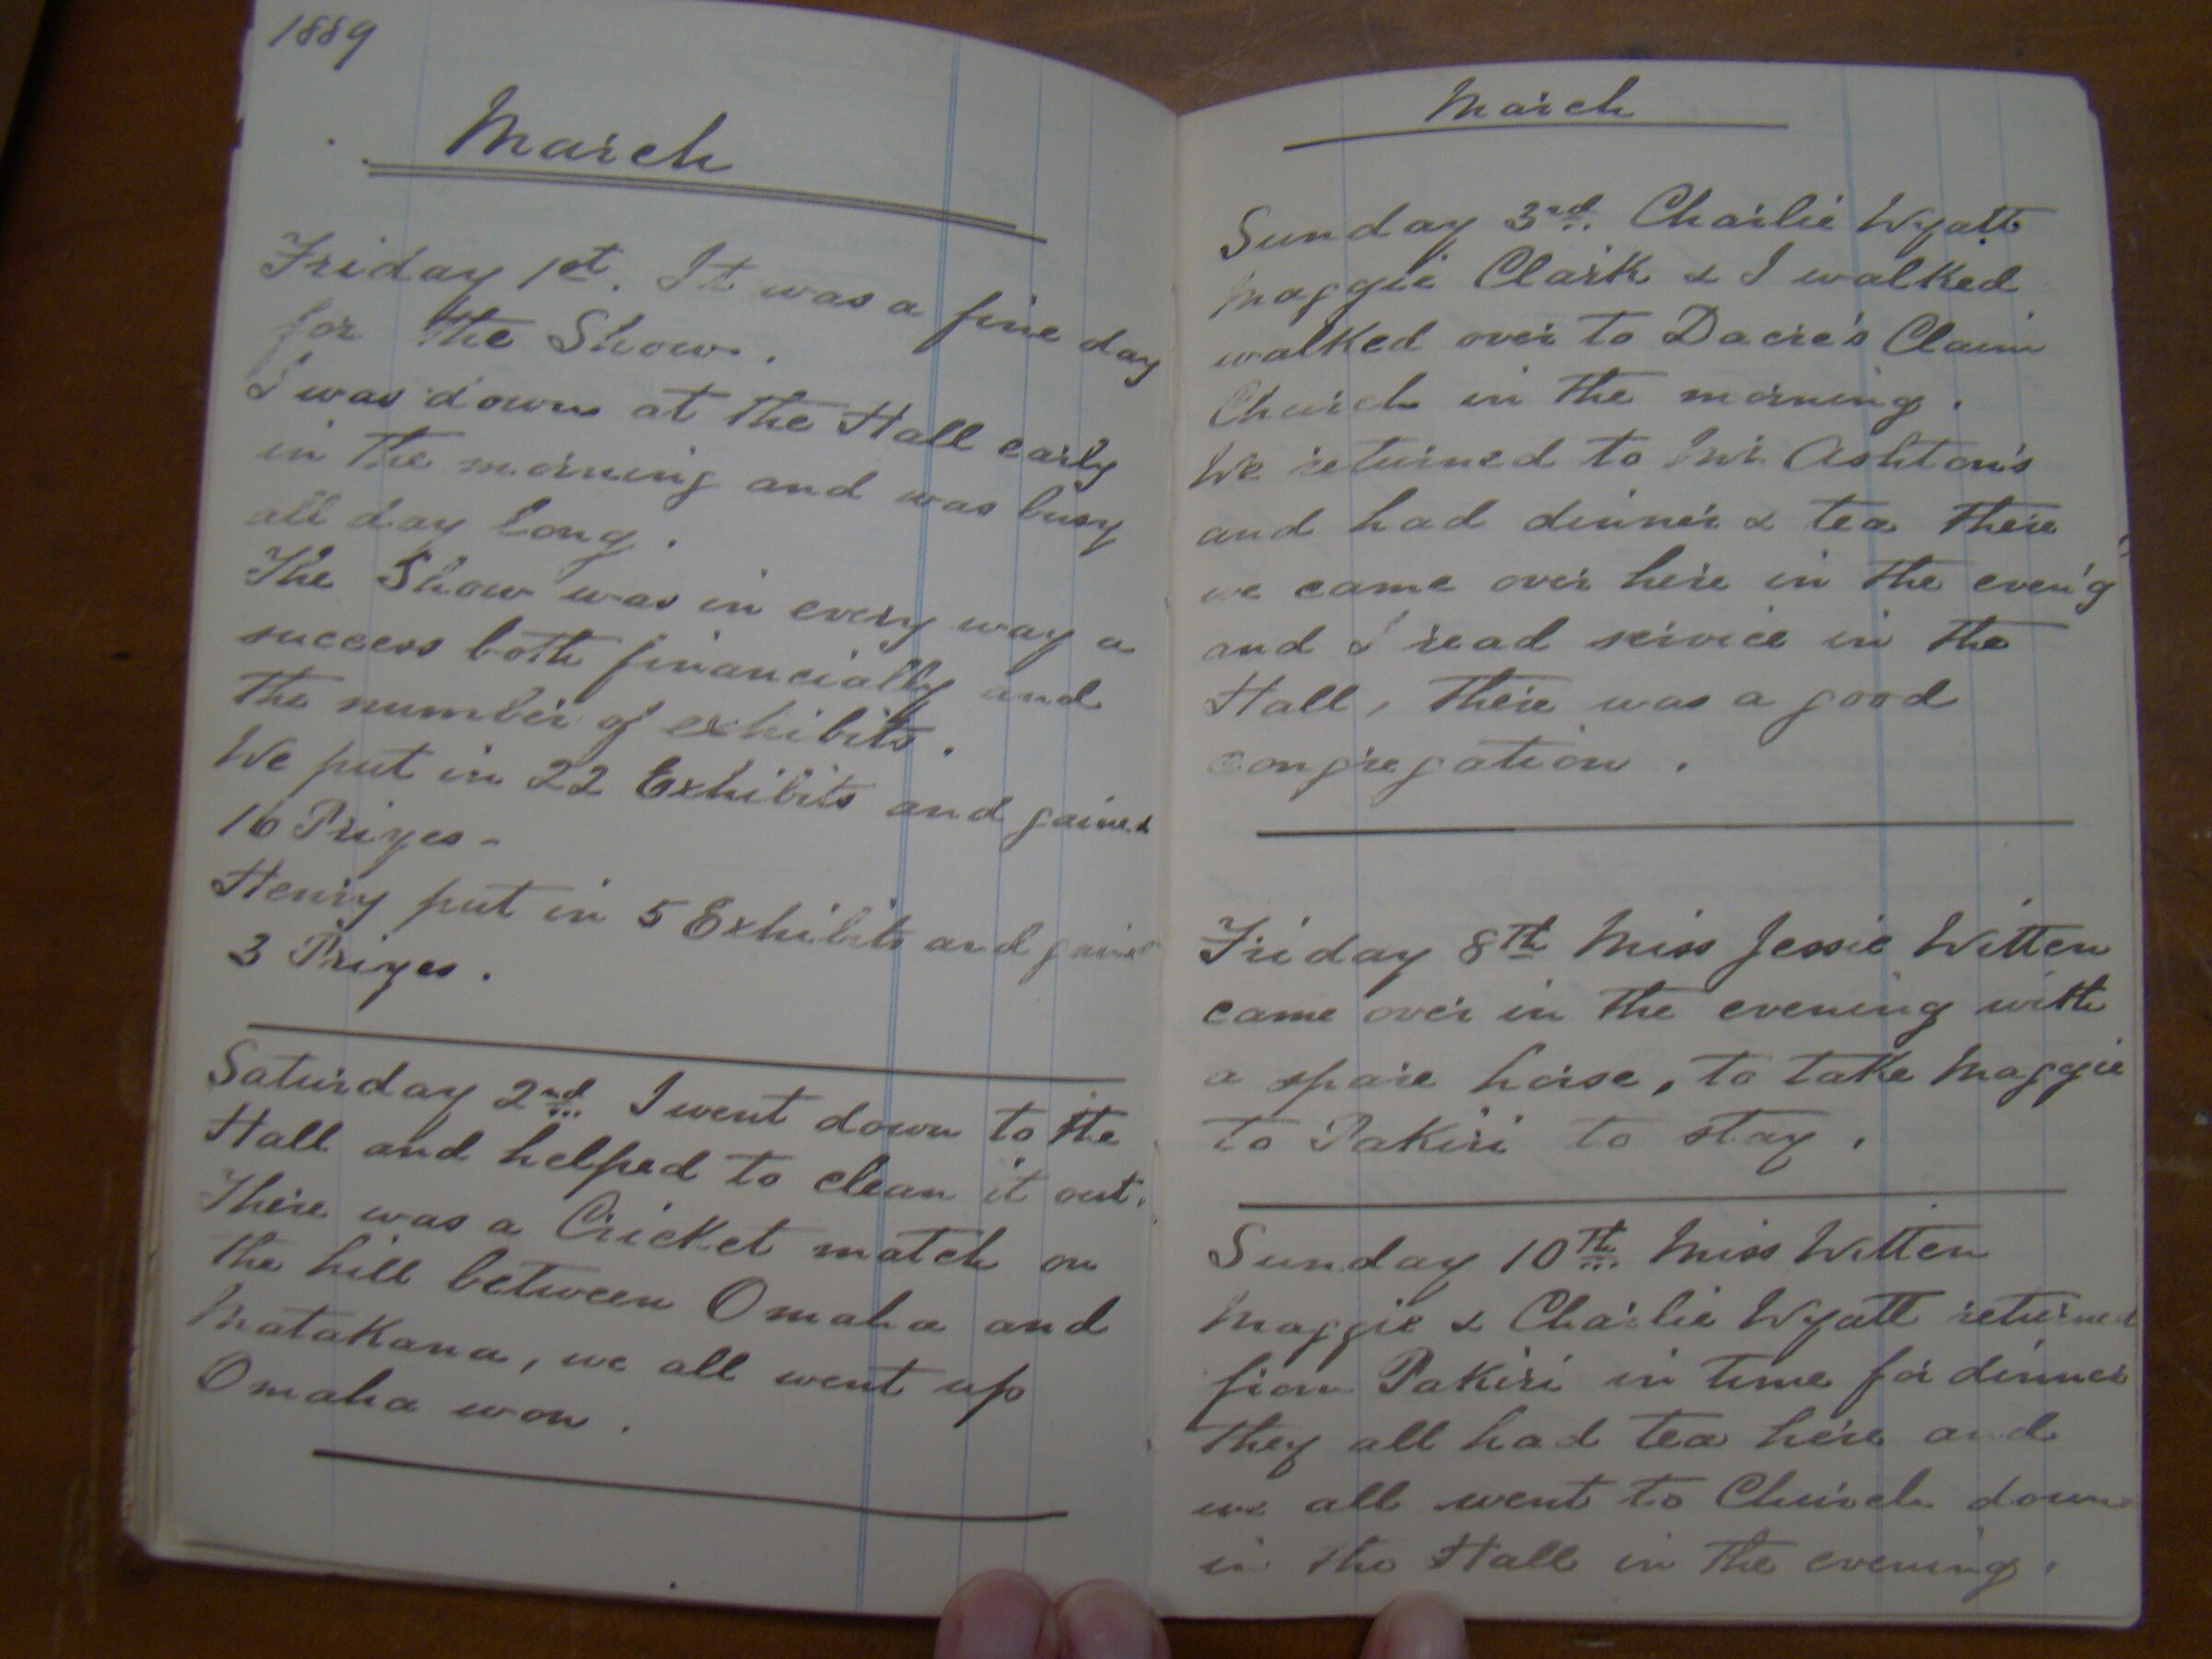 1889
March
Friday 1st. It was a fine day
for the Show.
I was down at the Hall early
in the morning and was busy
all day long.
The Show was in every way a
success both financially and
the number of exhibits.
We put in 22 Exhibits and gained
16 Prizes -
Henry put in 5 Exhibits and gained
3 Prizes.
Saturday 2nd I went down to the
Hall and helped to clean it out.
There was a Cricket match on
the hill between Omaha and
Matakana, we all went up
Omaha won.
March
Sunday 3rd. Charlie Wyatt
Maggie Clark & I walked
walked over to Dacre's Claim
Church in the morning.
We returned to Mr Ashton's
and had dinner & tea there
we came over here in the even'g
and I read service in the
Hall, there was a good
congregation.
Friday 8th Miss Jessie Witten
came over in the evening with
a spare horse, to take Maggie
to Pakiri to stay.
Sunday 10th. Miss Witten
Maggie & Charlie Wyatt returned
from Pakiri in time for dinner
they all had tea here and
we all went to Church down
in the Hall in the evening.